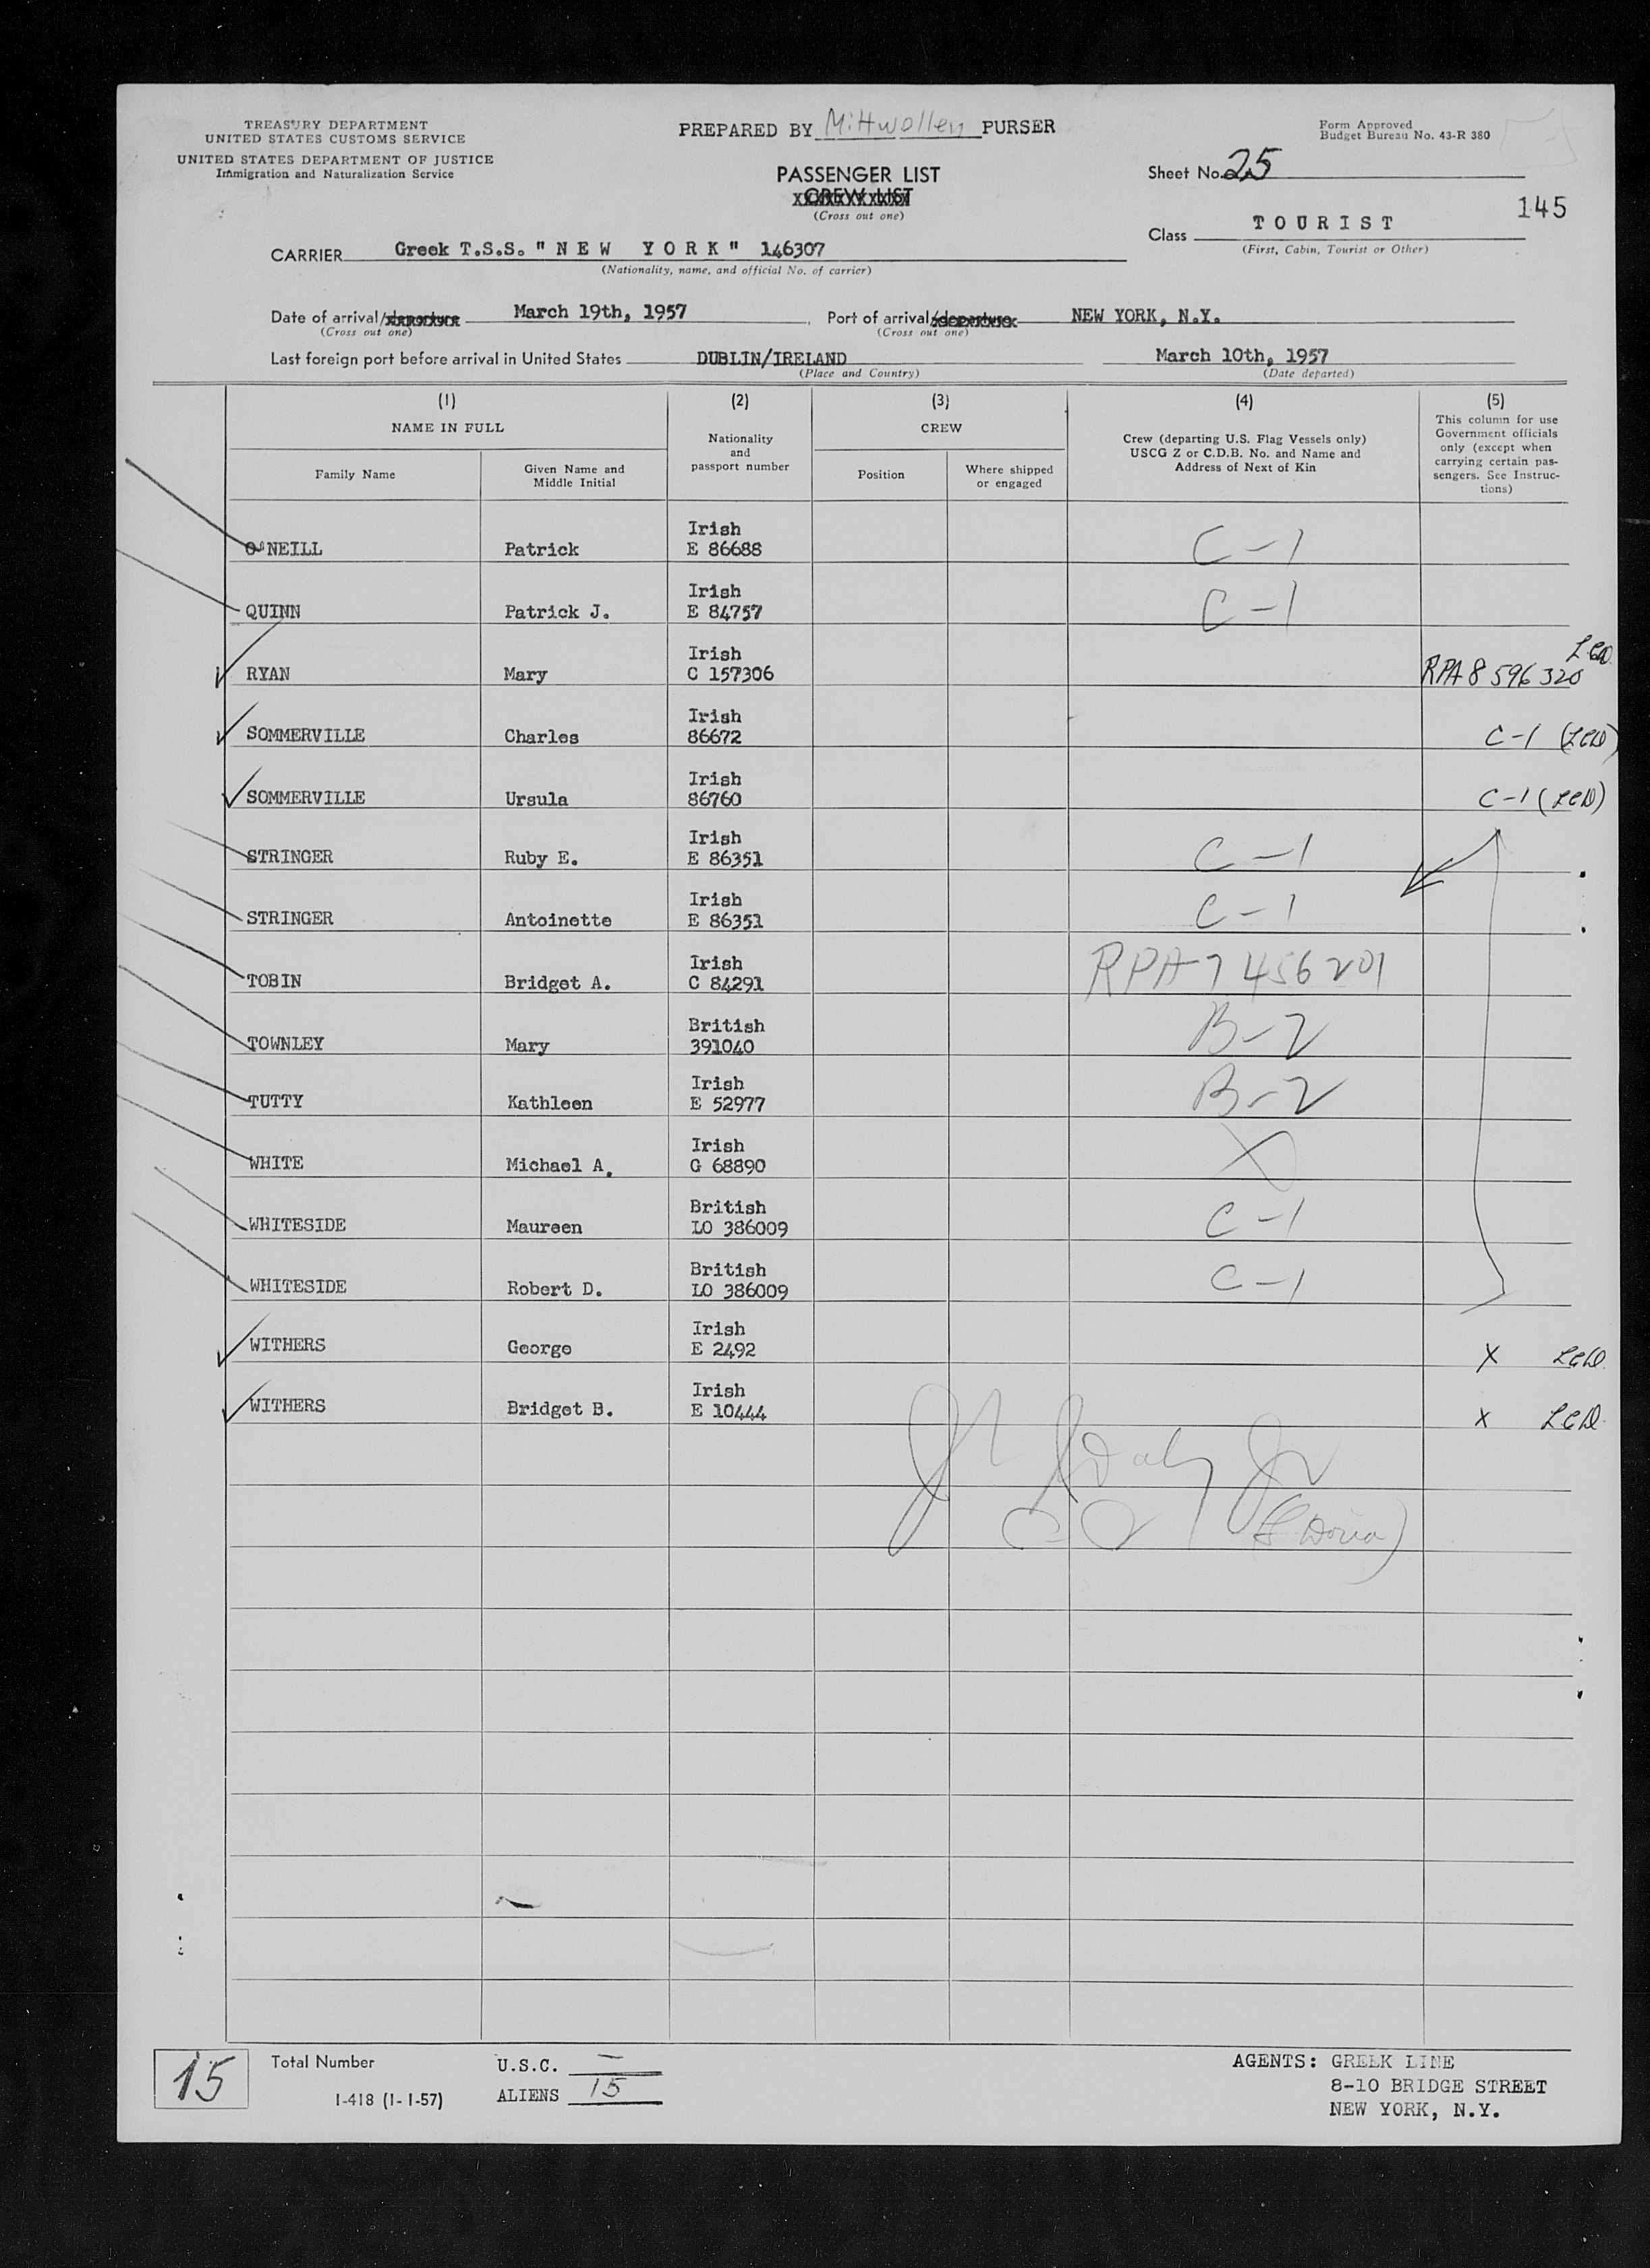 TREASURY DEPARTMENT
UNITED STATES CUSTOMS SERVICE
UNITED STATES DEPARTMENT OF JUSTICE
Immigration and Naturalization Service
PREPARED BY Mittwollen PURSER
PASSENGER LIST
CREW LIST
(Cross out one)
Form Approved
Budget Bureau No. 43-R 380
Sheet No. 25
145
Class TOURIST
(First, Cabin, Tourist or Other)
CARRIER Greek T.S.S. "NEW YORK" 146307
(Nationality, name, and official No. of carrier)
Date of arrival/departure March 19th, 1957 Port of arrival/departure NEW YORK, N.Y.
(Cross out one) (Cross out one)
Last foreign port before arrival in United States DUBLIN/IRELAND March 10th, 1957
(Place and Country) (Date departed)
(1) (2) (3) (4) (5)
NAME IN FULL
Family Name
Given Name and
Middle Initial
Nationality
and
passport number
CREW
Position
Where shipped
or engaged
Crew (departing U.S. Flag Vessels only)
USCG Z or C.D.B. No. and Name and
Address of Next of Kin
This column for use
Government officials
only (except when
carrying certain pas-
sengers. See Instruc-
tions)
Irish
O'NEILL Patrick E 86688 C-1
Irish
QUINN Patrick J. E 84757 C-1
Irish LCD
RYAN Mary C 157306 RPA 8 596 320
Irish
SOMMERVILLE Charles 86672 C-1 (LCD)
Irish
SOMMERVILLE Ursula 86760 C-1 (LCD)
Irish
STRINGER Ruby E. E 86351 C-1
Irish
STRINGER Antoinette E 86351 C-1
Irish
TOBIN Bridget A. C 84291 RPA 7 456 201
British
TOWNLEY Mary 391040 B-2
Irish
TUTTY Kathleen E 52977 B-2
Irish
WHITE Michael A. G 68890 X
British
WHITESIDE Maureen LO 386009 C-1
British
WHITESIDE Robert D. LO 386009 C-1
Irish
WITHERS George E 2492 X LCD
Irish
WITHERS Bridget B. E 10444 X LCD
15
Total Number
I-418 (1-1-57)
U.S.C. —
ALIENS 15
AGENTS: GREEK LINE
8-10 BRIDGE STREET
NEW YORK, N.Y.